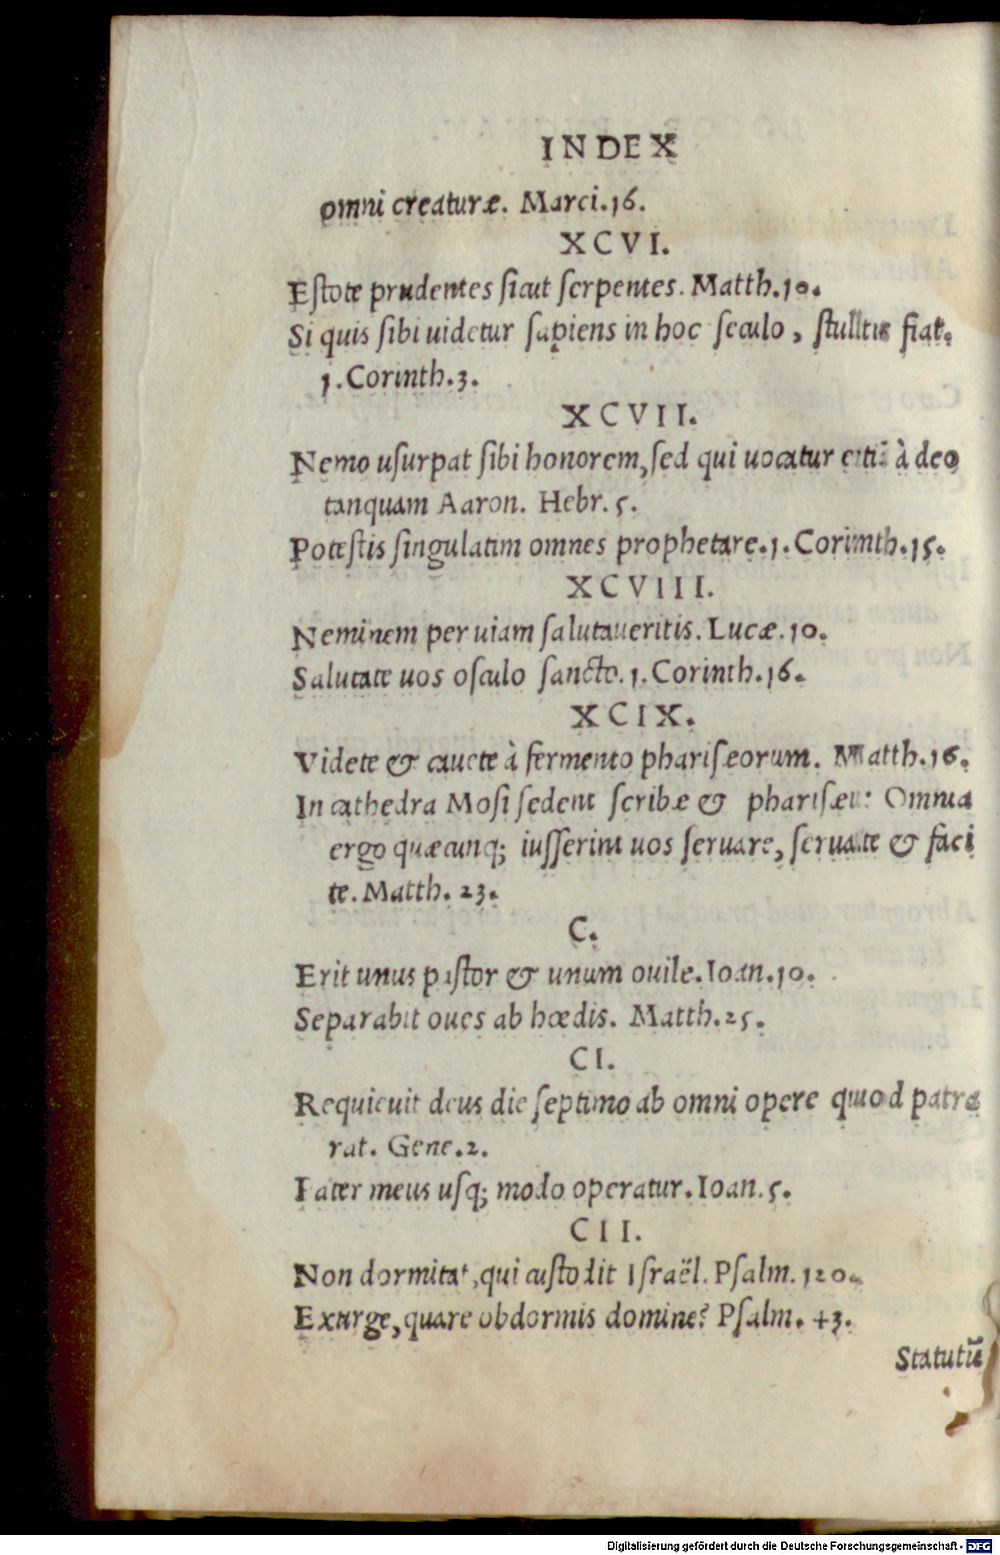 INDEX
omni creaturæ. Marci.16.
XCVI.
Estote prudentes sicut serpentes. Matth.10.
Si quis sibi uidetur sapiens in hoc seculo, stultus fiat.
1. Corinth.3.
XCVII.
Nemo usurpat sibi honorem, sed qui uocatur etiã à deo
tanquam Aaron. Hebr. 5.
Potestis singulatim omnes prophetare. 1. Corinth.15.
XCVIII.
Neminem per uiam salutaueritis. Lucæ.10.
Salutate uos osculo sancto. 1. Corinth.16.
XCIX.
Videte & cauete à fermento phariſæorum. Matth.16.
In cathedra Mosi sedent scribæ & pharisæi: Omnia
ergo quæcunq; iusserint uos seruare, seruate & faci
te. Matth. 23.
C.
Erit unus pastor & unum ouile. Ioan.10.
Separabit oues ab hœdis. Matth.25.
CI.
Requieuit deus die septimo ab omni opere quod patra
rat. Gene.2.
Pater meus usq; modo operatur. Ioan.5.
CII.
Non dormitat, qui custodit Israël. Psalm.120.
Exurge, quare obdormis domine? Psalm. 43.
Statutũ
Digitalisierung gefördert durch die Deutsche Forschungsgemeinschaft - DFG